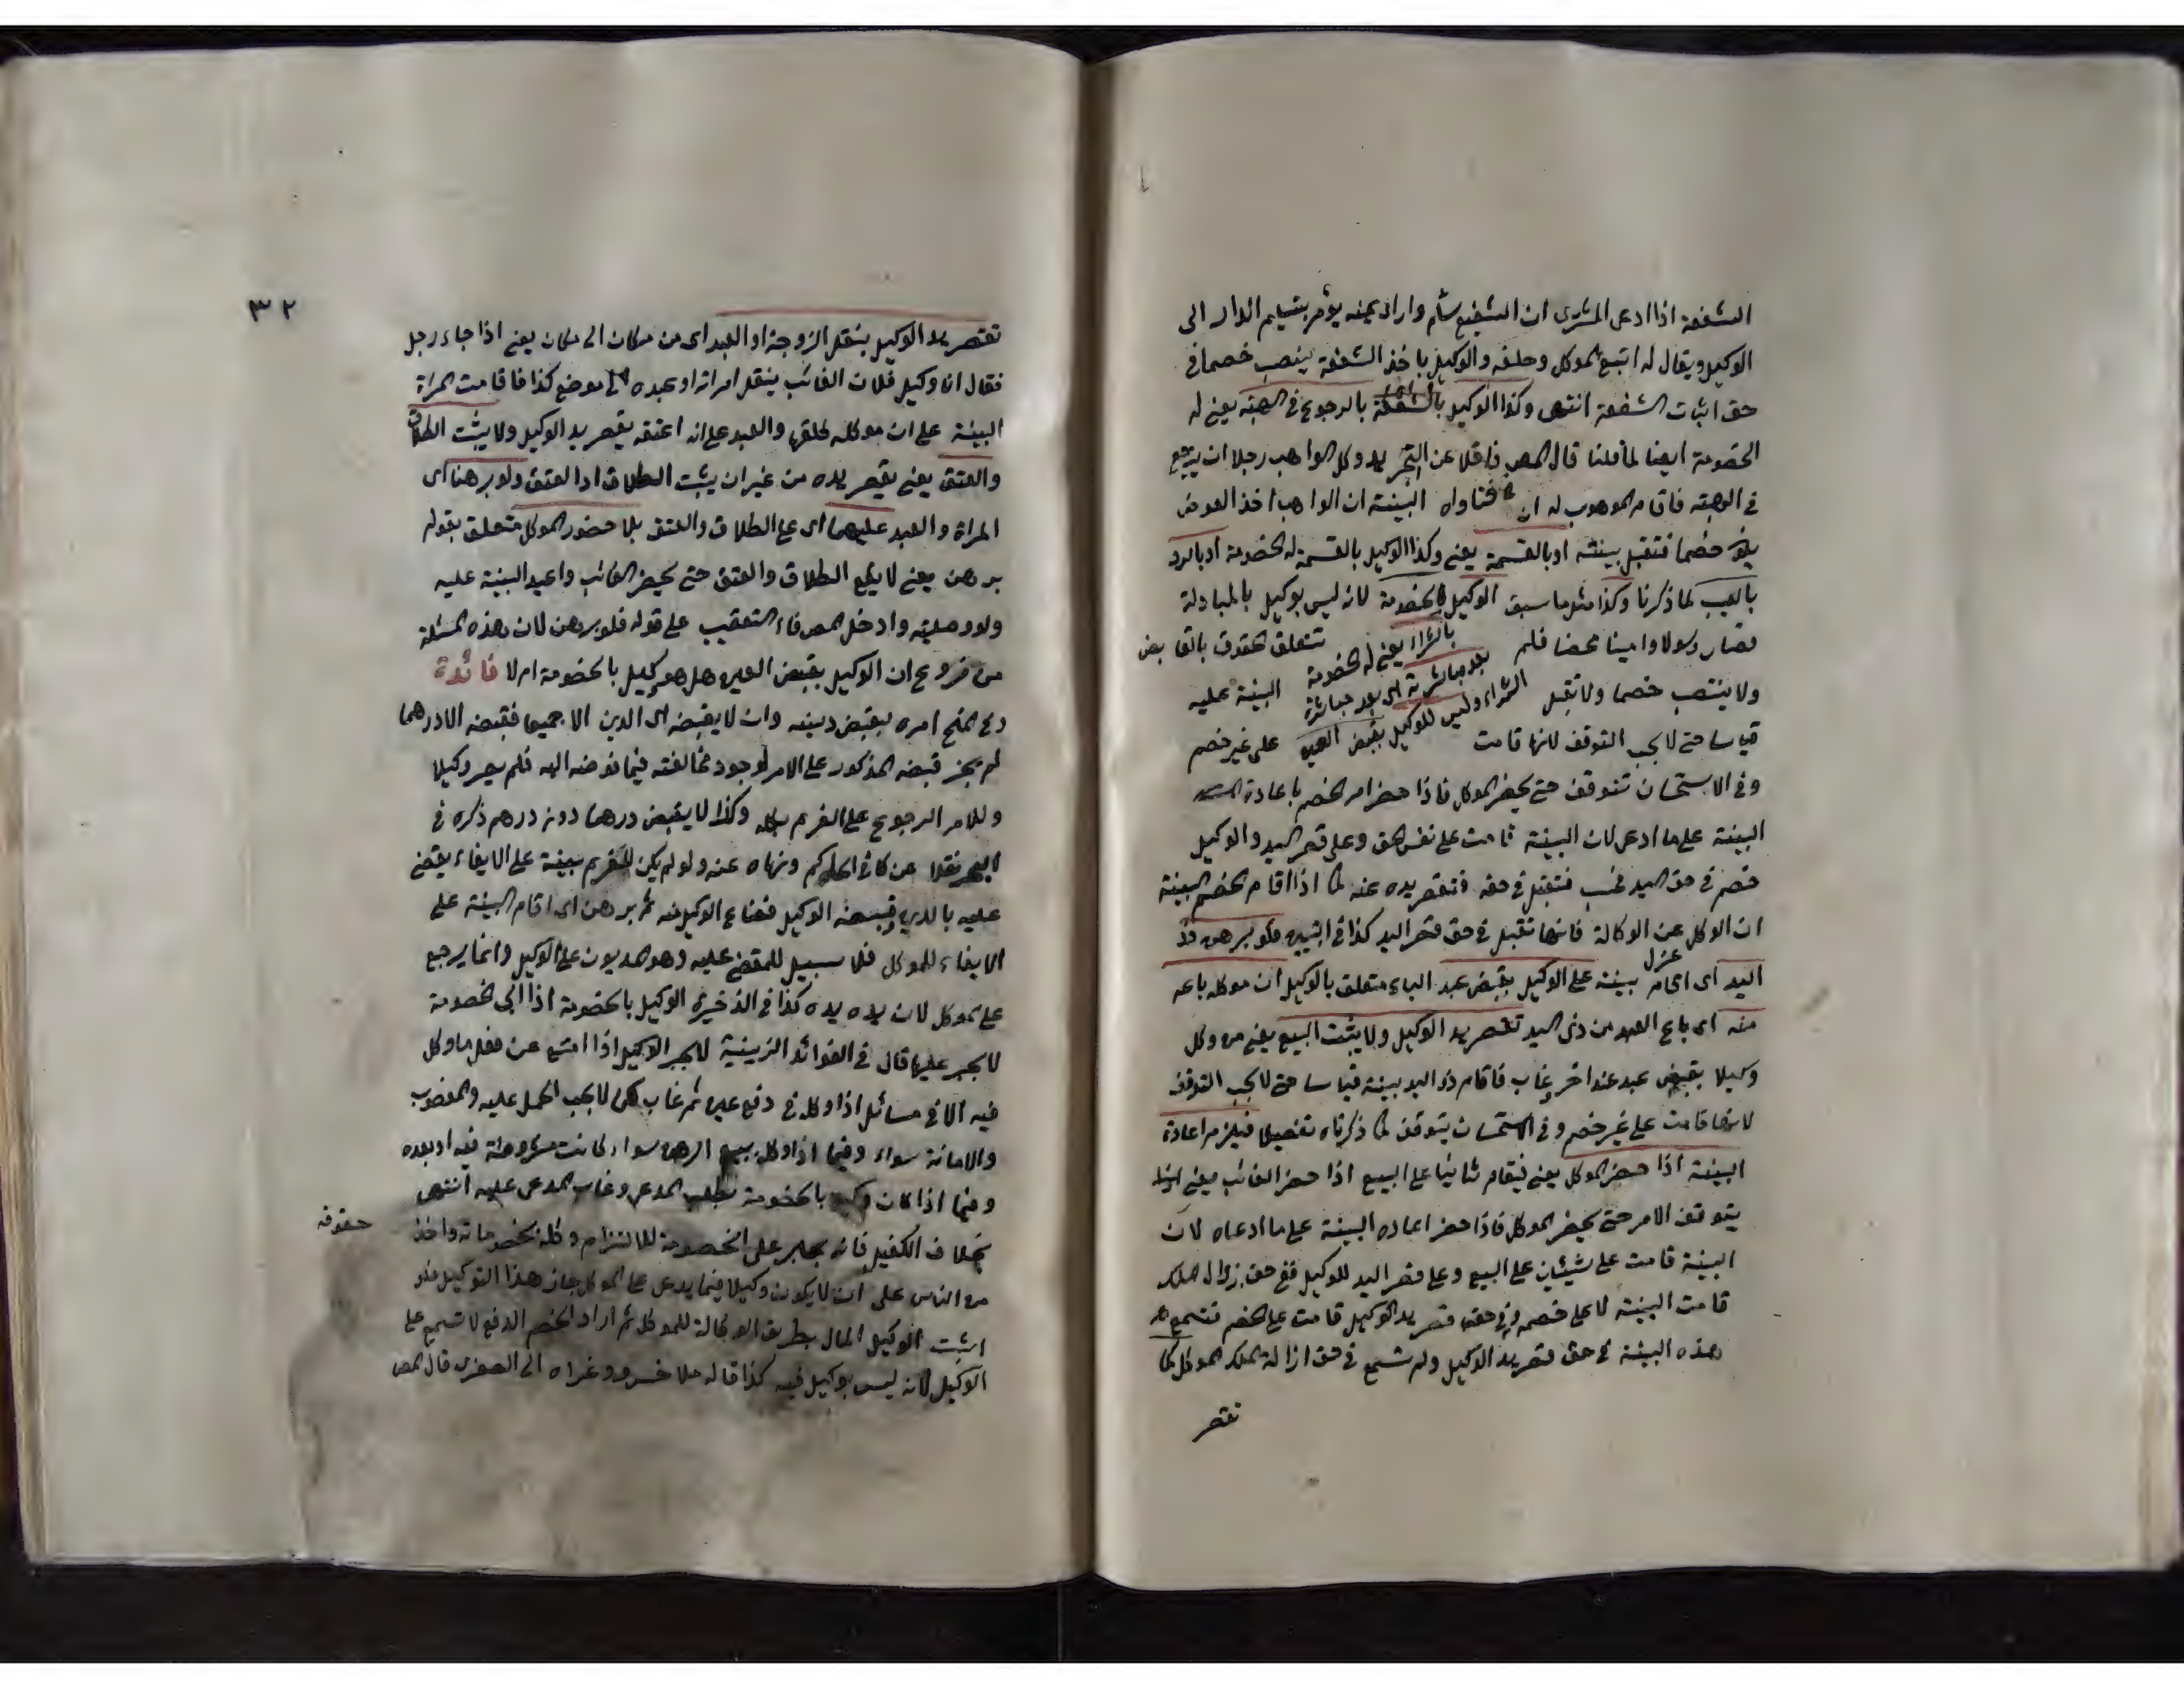 الشفعة اذا ادعى المشترى ان الشفيع سلم واراد يمينه يؤمر بتسليم الدار الى
الوكيل ويقال له اتبع الموكل وحلفه والوكيل باخذ الشفعة ينصب خصما في
حق اثبات الشفعة انتهى وكذا الوكيل بالرجوع في الهبة يعني له
الخصومة ايضا لما قلنا قال المص ناقلا عن التجريد وكل الواهب رجلا ان يرجع
في الهبة فاقام الموهوب له البينة ان الواهب اخذ العوض
خصما فتقبل بينته او بالقسمة يعني وكذا الوكيل بالقسمة له الخصومة او بالرد
بالعيب لما ذكرنا وكذا مثل ما سبق الوكيل لانه ليس بوكيل بالمبادلة
بالشراء يعني له الخصومة
بعد مباشرته اي بعد مباشرة
الشراء وليس للوكيل بقبض العين
فصار رسولا وامينا محضا فلم تتعلق الحقوق بالقابض
ولا ينتصب خصما ولا تقبل البينة عليه
قياسا حتى لا يجب التوقف لانها قامت على غير خصم
وفي الاستحسان تتوقف حتى يحضر الموكل فاذا حضر امر الخصم باعادة
البينة على ما ادعى لان البينة قامت على نفس الحق وعلى قصر اليد والوكيل
خصم في حق اليد فحسب فتقبل في حقه فتقصر يده عنه كما اذا اقام الخصم البينة
ان الموكل عزل عن الوكالة فانها تقبل في حق قصر اليد كذا في التبيين فلو برهن ذو
اليد اى اقام بينة على الوكيل بقبض عبد الباء متعلق بالوكيل ان موكله باعه
منه اى باع العبد من ذى اليد تقصر يد الوكيل ولا يثبت البيع يعني من وكل
وكيلا بقبض عبد عند اخر وغاب فاقام ذو اليد بينة قياسا حتى لا يجب التوقف
لانها قامت على غير خصم وفي الاستحسان يتوقف لما ذكرناه تفصيلا فيلزم اعادة
البينة اذا حضر الموكل يعني فيقام ثانيا على البيع اذا حضر الغائب يعني
يتوقف الامر حتى يحضر الموكل فاذا حضر اعاده البينة على ما ادعاه لان
البينة قامت على شيئان على البيع وعلى قصر اليد للوكيل ففي حق زوال الملك
قامت البينة لا على خصم وفي حق قصر يد الوكيل قامت على الخصم فتسمع
هذه البينة في حق قصر يد الوكيل ولم تسمع في حق ازالة الملك الموكل كما
تقصر
٣٢
تقصر يد الوكيل بنقل الزوجة او العبد اى من مكان الى مكان يعني اذا جاء رجل
فقال انا وكيل فلان الغائب بنقل امراته او عبده الى موضع كذا فاقامت المرأة
البينة على ان موكله طلقها والعبد على انه اعتقه يقصر يد الوكيل ولا يثبت الطلاق
والعتق يعني يقصر يده من غير ان يثبت الطلاق او العتق ولو برهنا اى
المراة والعبد عليهما اى على الطلاق والعتق بلا حضور الموكل متعلق بقوله
برهن يعني لا يقع الطلاق والعتق حتى يحضر الغائب واعيد البينة عليه
ولو وصلية وادخل المص فاء التعقيب على قوله فلو برهن لان هذه المسئلة
من فروع ان الوكيل بقبض العين هل هو وكيل بالخصومة ام لا فائدة
وفي المنح امره بقبض دينه وان لا يقبضه اى الدين الا جميعا فقبضه الا درهما
لم يجز قبضه المذكور على الامر لوجود مخالفته فيما فوضه اليه فلم يصر وكيلا
وللامر الرجوع على الغريم بكله وكذا لا يقبض درهما دون درهم ذكره في
البحر نقلا عن كافي الحاكم ونهاه عنه ولو لم يكن للغريم بينة على الايفاء يقضى
عليه بالدين وقبضه الوكيل فضاع الوكيل منه ثم برهن اى اقام البينة على
الايفاء للموكل فلا سبيل للمقضى عليه وهو المديون على الوكيل وانما يرجع
على الموكل لان يده يده كذا في الذخيرة الوكيل بالخصومة اذا ابى الخصومة
لا يجبر عليها قال في الفوائد الزينية لا يجبر الوكيل اذا امتنع عن فعل ما وكل
فيه الا في مسائل اذا وكله في دفع عين ثم غاب لكن لا يجب الحمل عليه والمغصوب
والامانة سواء وفيما اذا وكل ببيع الرهن سواء كانت مشروطة فيه او بعده
وفيما اذا كان وكيلا بالخصومة بطلب المدعى وغاب المدعى عليه انتهى
بخلاف الكفيل فانه يجبر على الخصومة للالتزام وكله بخصوماته واخذ حقوقه
من الناس على ان لا يكون وكيلا فيما يدعى على الموكل جاز هذا التوكيل فلو
اثبت الوكيل المال بطريق الوكالة للموكل ثم اراد الخصم الدفع لا تسمع على
الوكيل لانه ليس بوكيل فيه كذا قاله ملا خسرو وعزاه الى الصغرى قال المص